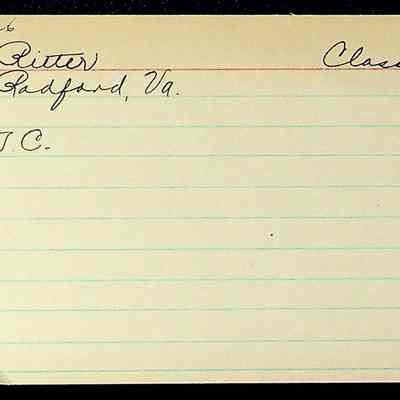 6
Ritter Class
Radford, Va.
T.C.